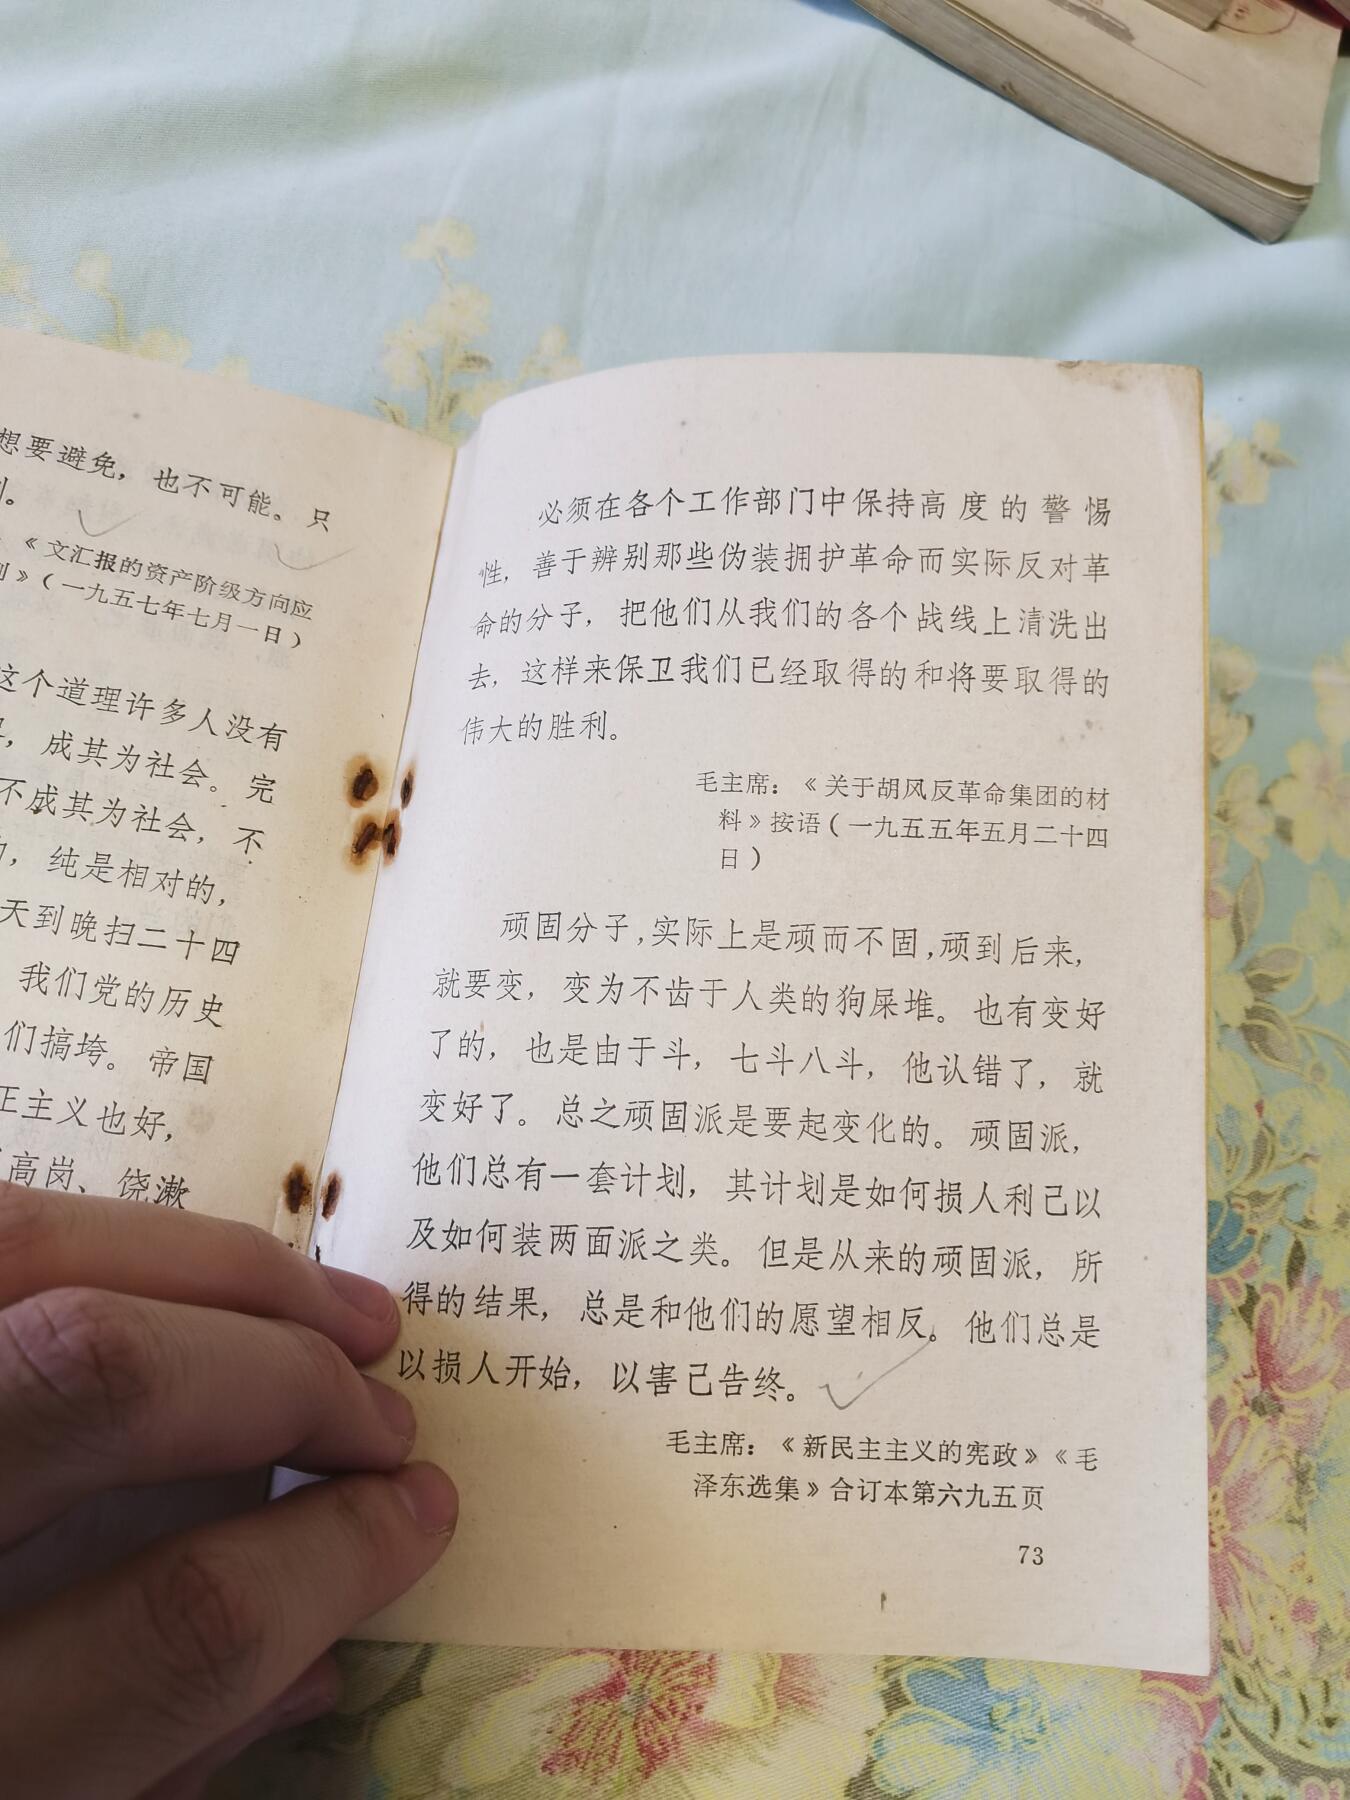 想要避免，也不可能。只
。
《文汇报的资产阶级方向应
》(一九五七年七月一日)
这个道理许多人没有
，成其为社会。完
不成其为社会，不
，纯是相对的，
天到晚扫二十四
我们党的历史
们搞垮。帝国
正主义也好，
高岗、饶漱
必须在各个工作部门中保持高度的警惕
性，善于辨别那些伪装拥护革命而实际反对革
命的分子，把他们从我们的各个战线上清洗出
去，这样来保卫我们已经取得的和将要取得的
伟大的胜利。
毛主席：《关于胡风反革命集团的材
料》按语(一九五五年五月二十四
日)
顽固分子，实际上是顽而不固，顽到后来，
就要变，变为不齿于人类的狗屎堆。也有变好
了的，也是由于斗，七斗八斗，他认错了，就
变好了。总之顽固派是要起变化的。顽固派，
他们总有一套计划，其计划是如何损人利己以
及如何装两面派之类。但是从来的顽固派，所
得的结果，总是和他们的愿望相反。他们总是
以损人开始，以害己告终。
毛主席：《新民主主义的宪政》《毛
泽东选集》合订本第六九五页
73